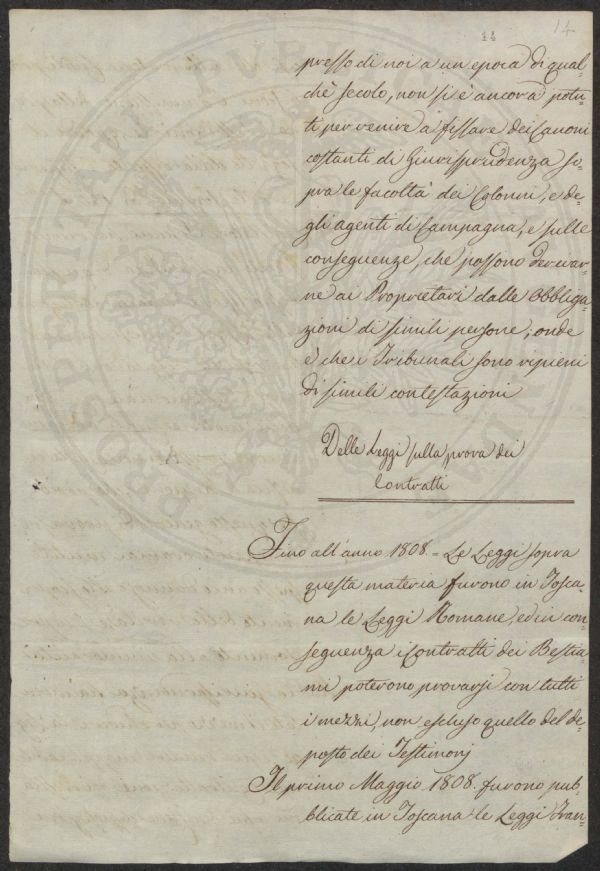 14
14
presso di noi a un epoca di qual=
chè secolo, non si è ancora potu=
ti pervenire a fissare dei Canoni
costanti di Giurisprudenza so=
pra le facoltà dei Coloni, e de=
gli agenti di Campagna, e sulle
conseguenze, che possono derivar=
ne ai Proprietari dalle Obbliga=
zioni di simili persone, onde
è che i Tribunali sono ripieni
di simili contestazioni
Delle Leggi sulla prova dei
Contratti
Fino all'anno 1808 = Le Leggi sopra
questa materia furono in Tosca=
na le Leggi Romane, ed in con=
seguenza i Contratti dei Bestia=
mi poterono provarsi con tutti
i mezzi, non escluso quello del de=
posto dei Testimonj
Il primo Maggio 1808. furono pub=
blicate in Toscana le Leggi Fran=